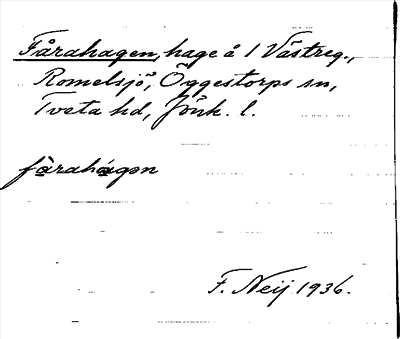 Fårahagen, hage å 1 Västreg.,
Romelsjö, Öggestorps sn,
Tveta hd, Jönk. l.
fårahágən
F. Neij 1936.